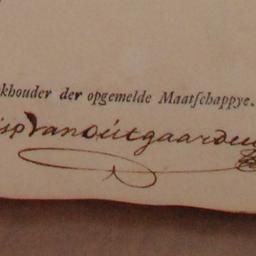 khouder der opgemelde Maatſchappye.
VanOútgaarden